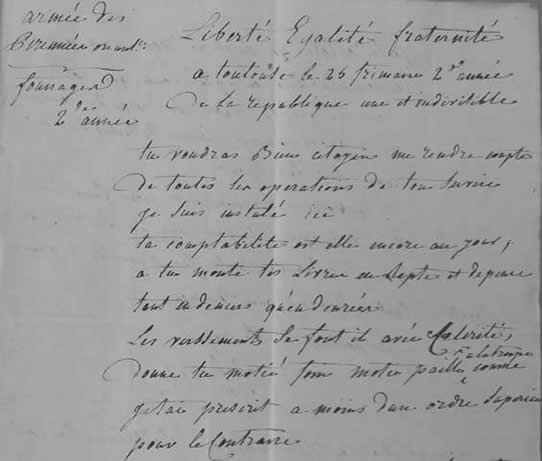 armée des
Pirennées orientles
fourages
2de année
Liberté Egalité fraternité
a toulouse le 26 frimaire 2de année
de la republique une et indivisible
tu voudras Bien citoyen me rendre compte
de toutes les operations de ton Service
je suis instalé ici
ta comptabilité est elle encore au jour,
a tu monté tes Livres en Repte et depense
tant en deniers qu'en denrées
Les versements se font il avec Celerité,
donne tu motié foin motié paille a la troupe comme
je tai prescrit a moins dun ordre Superieur
pour le Contraire